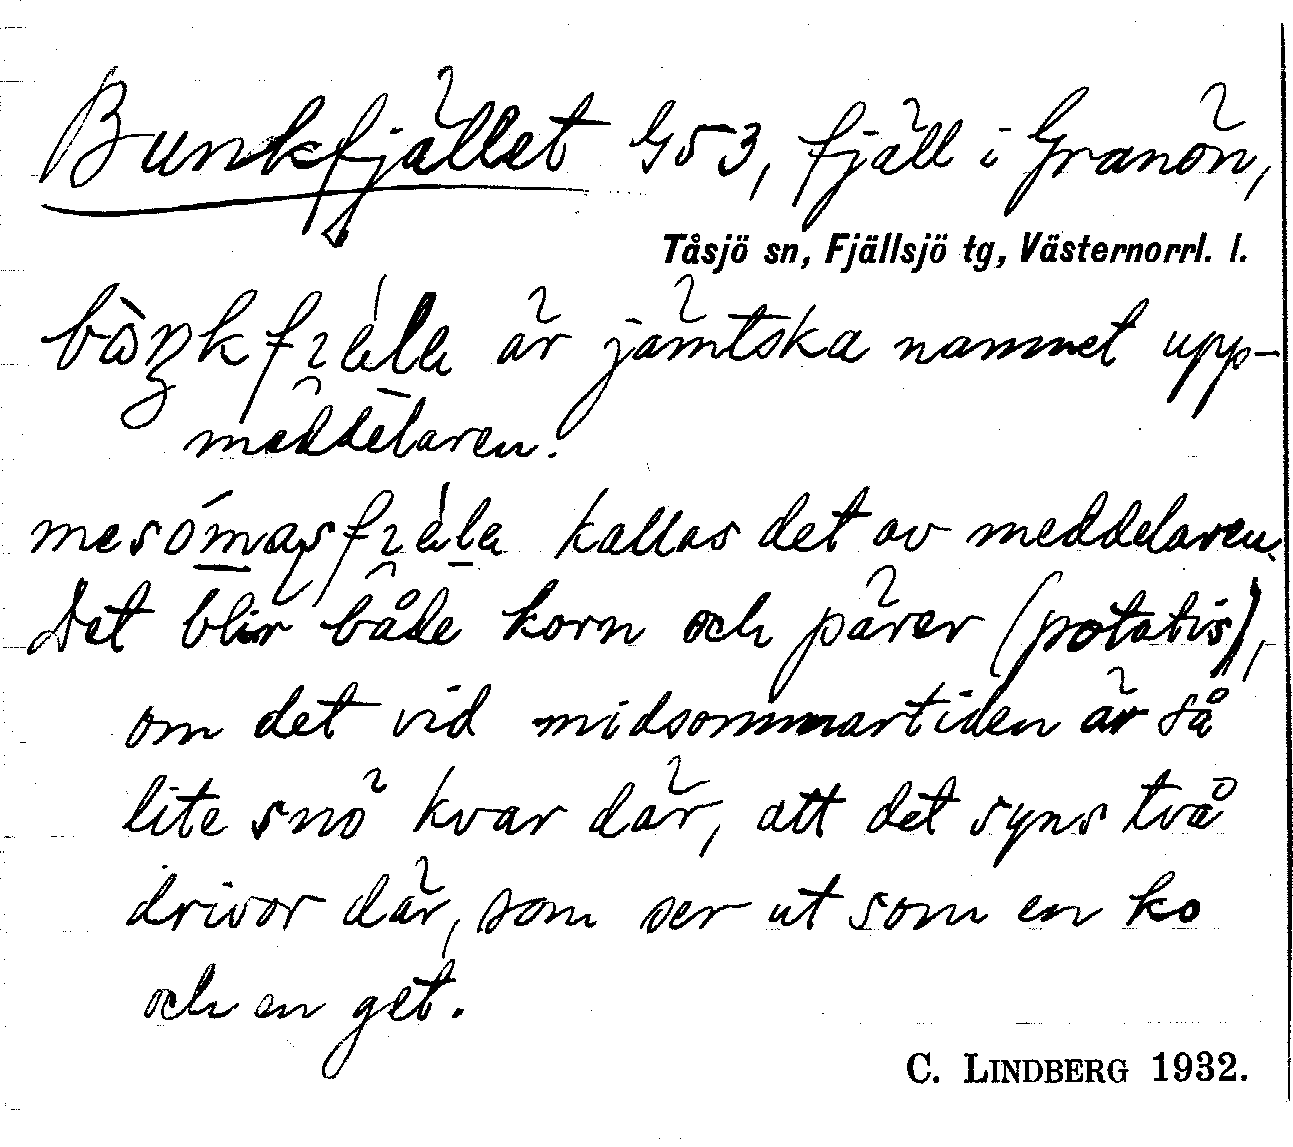 Bunkfjället G53, fjäll i Granön,
Tåsjö sn, Fjällsjö tg, Västernorrl. l.
är jämtska namnet upp-
meddelaren.
kallas det av meddelaren.
Det blir både korn och pärer (potatis),
om det vid midsommartiden är så
lite snö kvar där, att det syns två
drivor där, som ser ut som en ko
och en get.
C. LINDBERG 1932.